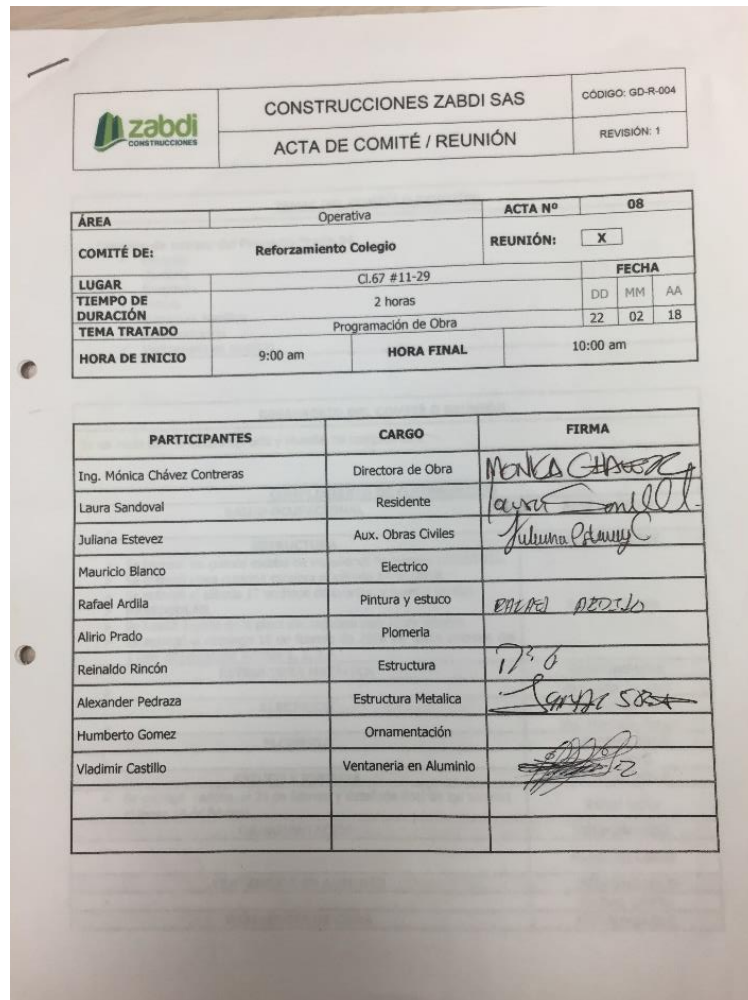 zabdi
CONSTRUCCIONES
CONSTRUCCIONES ZABDI SAS
ACTA DE COMITÉ / REUNIÓN
CÓDIGO: GD-R-004
REVISIÓN: 1
ÁREA Operativa ACTA Nº 08
COMITÉ DE: Reforzamiento Colegio REUNIÓN: X
LUGAR Cl.67 #11-29 FECHA
TIEMPO DE DURACIÓN 2 horas DD MM AA
TEMA TRATADO Programación de Obra 22 02 18
HORA DE INICIO 9:00 am HORA FINAL 10:00 am
PARTICIPANTES CARGO FIRMA
Ing. Mónica Chávez Contreras Directora de Obra MONICA CHAVEZ
Laura Sandoval Residente
Juliana Estevez Aux. Obras Civiles
Mauricio Blanco Electrico
Rafael Ardila Pintura y estuco
Alirio Prado Plomeria
Reinaldo Rincón Estructura
Alexander Pedraza Estructura Metalica
Humberto Gomez Ornamentación
Vladimir Castillo Ventaneria en Aluminio